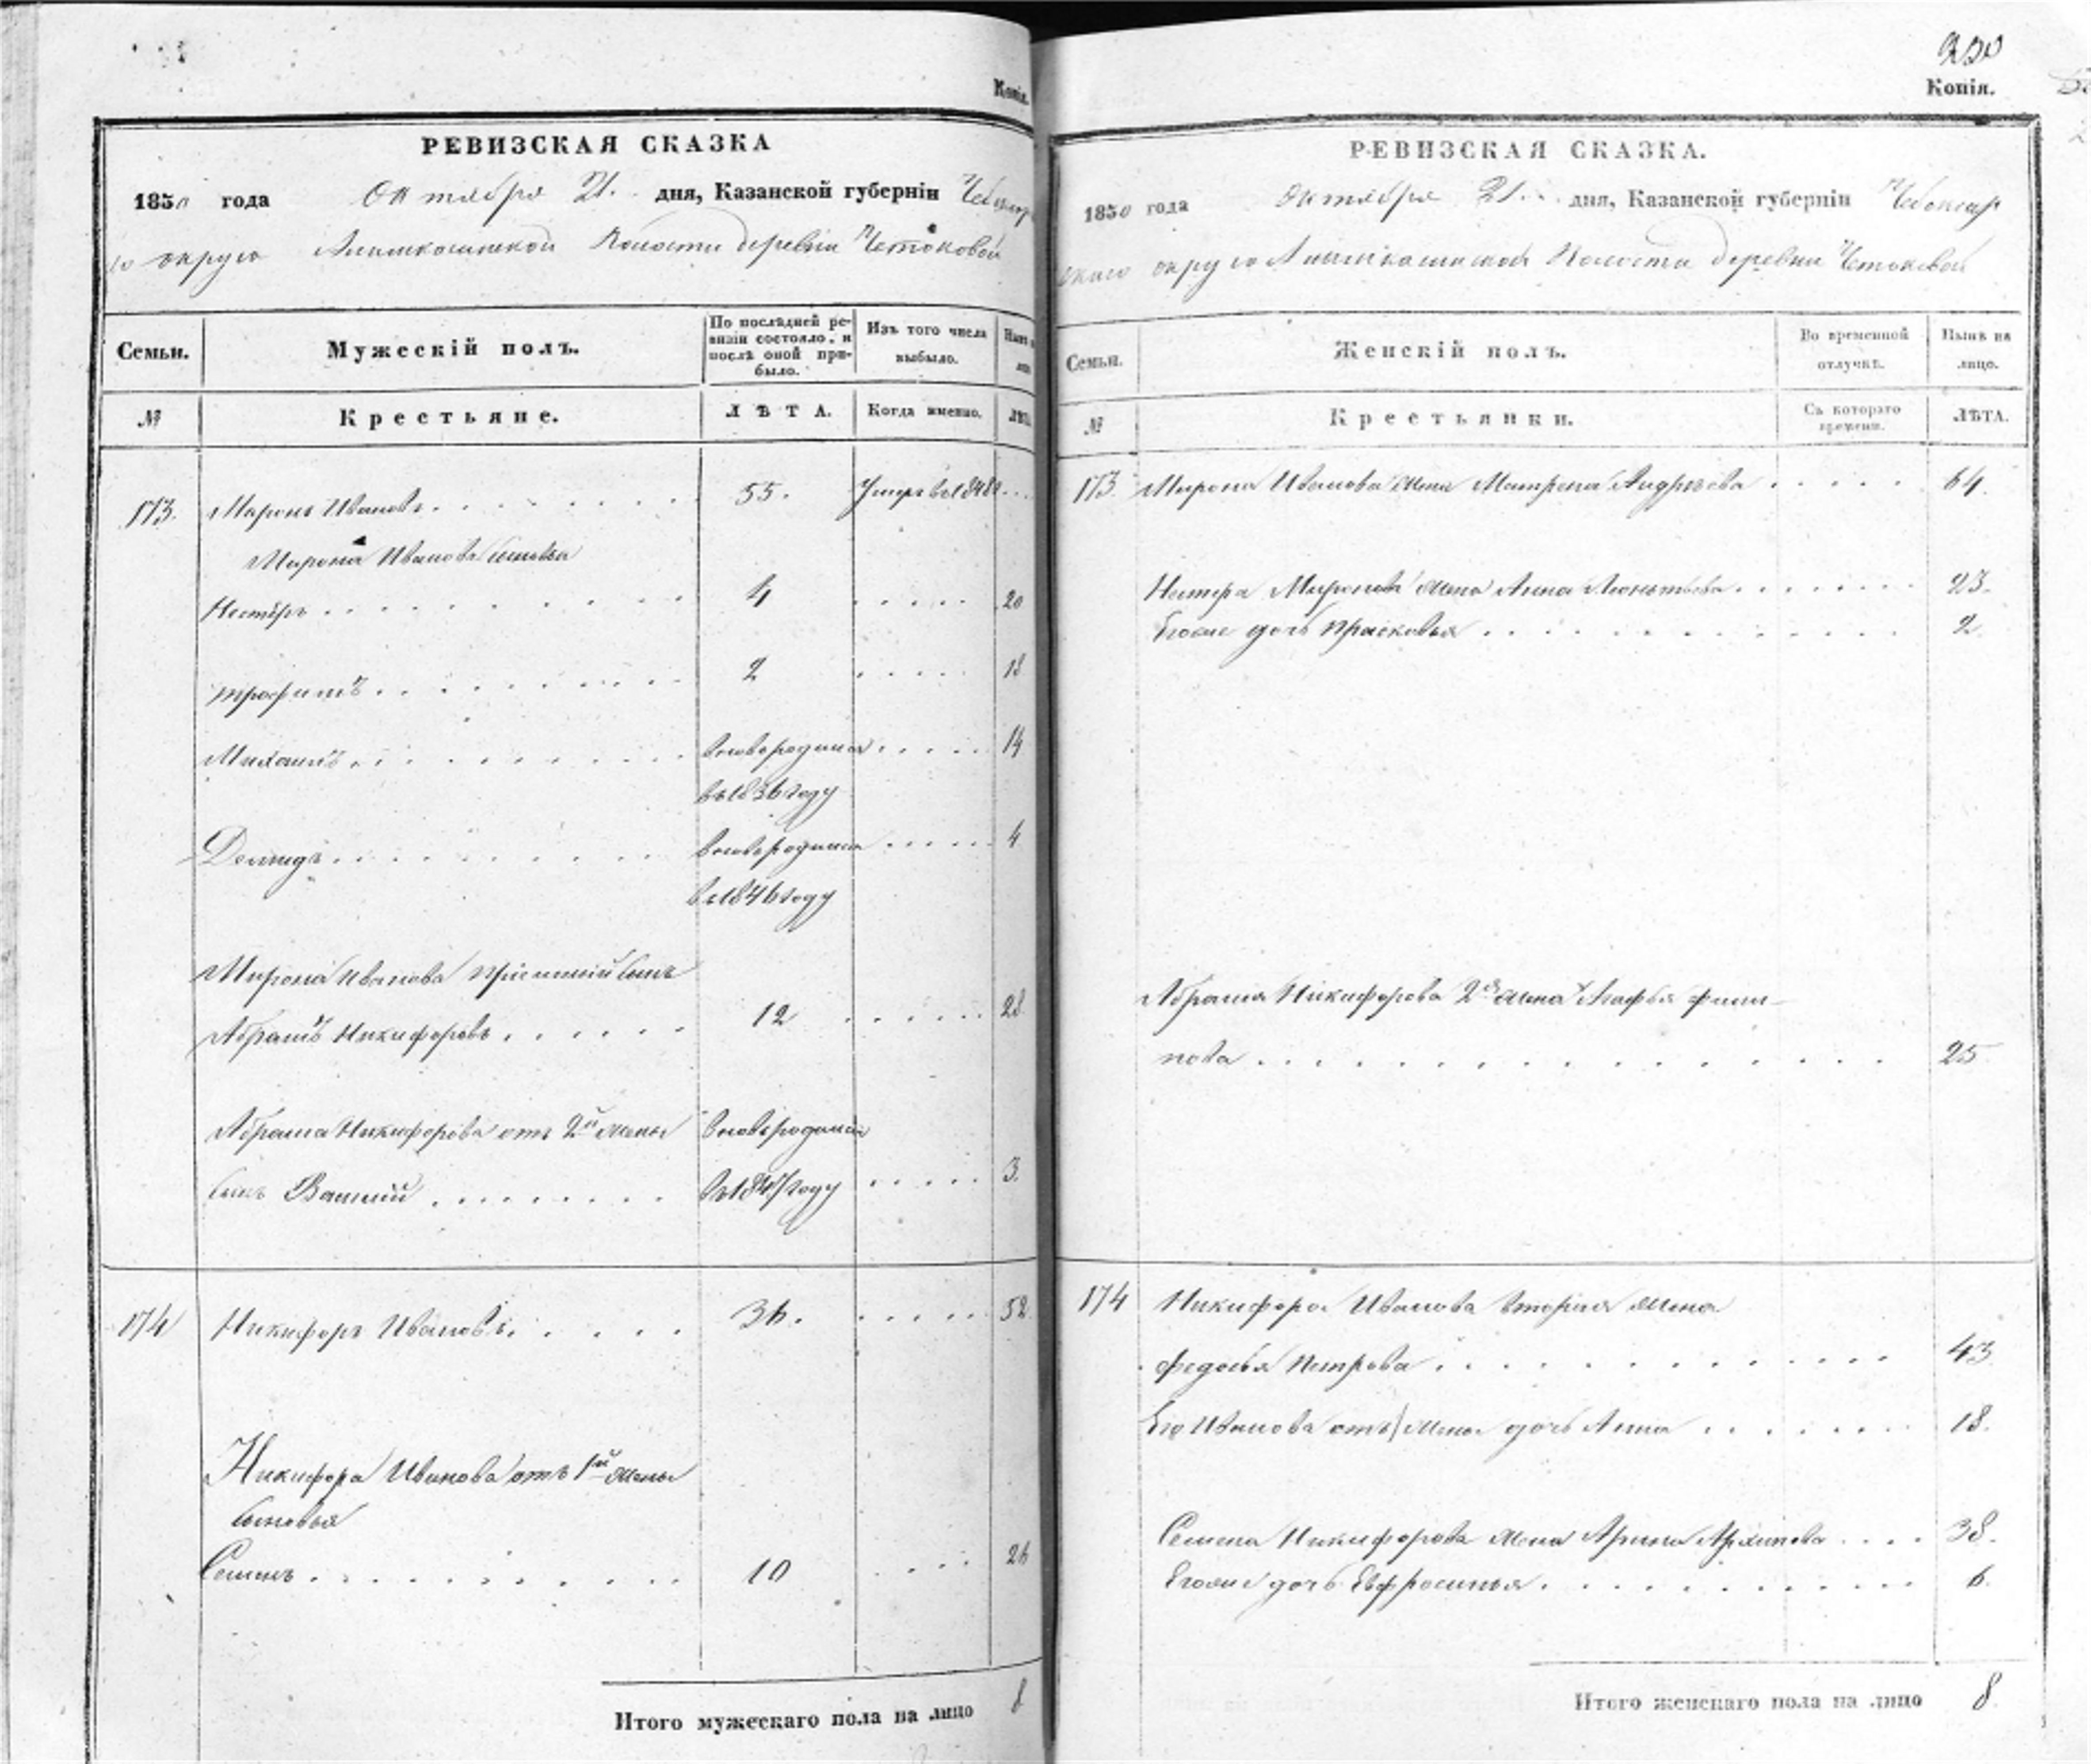 Копія.
РЕВИЗСКАЯ СКАЗКА
1850 года Октября 21. дня, Казанской губерніи Чебоксар
го округа Алымкасинской Волости деревни Четоковой
Семьи.
Мужескій полъ.
По послѣдней ре-
визіи состояло, и
послѣ оной при-
было.
Изъ того числа
выбыло.
№
Крестьяне.
ЛѢТА.
Когда именно.
173. Миронъ Ивановъ 55. Умеръ въ 1848
Мирона Иванова сыновья
Нестеръ 4 20
Трофимъ 2 18
Михаилъ вновьрожден 14
въ 1836 году
Демидъ вновьрожден 4
въ 1846 году
Мирона Иванова пріемный сынъ
Абрамъ Никифоровъ 12 28
Абрама Никифорова отъ 2й жены вновьрожден
сынъ Василій въ 1847 году 3.
174 Никифоръ Ивановъ 36. 52
Никифора Иванова отъ 1й жены
сыновья
Семенъ 10 26
Итого мужескаго пола на лицо 8
250
Копія.
РЕВИЗСКАЯ СКАЗКА.
1850 года Октября 21. дня, Казанской губерніи Чебоксар
скаго округа Алымкасинской Волости деревни Четоковой
Семьи.
Женскій полъ.
Во временной
отлучкѣ.
Нынѣ на
лицо.
№
Крестьянки.
Съ котораго
времени.
ЛѢТА.
173. Мирона Иванова жена Матрена Андреева 64.
Нестера Миронова жена Анна Леонтьева 23.
Егоже дочь Прасковья 2.
Абрама Никифорова 2я жена Агафья Филип-
пова 25
174 Никифора Иванова вторая жена
Федосья Петрова 43
Его Иванова отъ 1 жены дочь Анна 18.
Семена Никифорова жена Арина Архипова 38.
Егоже дочь Евфросинья 6.
Итого женскаго пола на лицо 8.